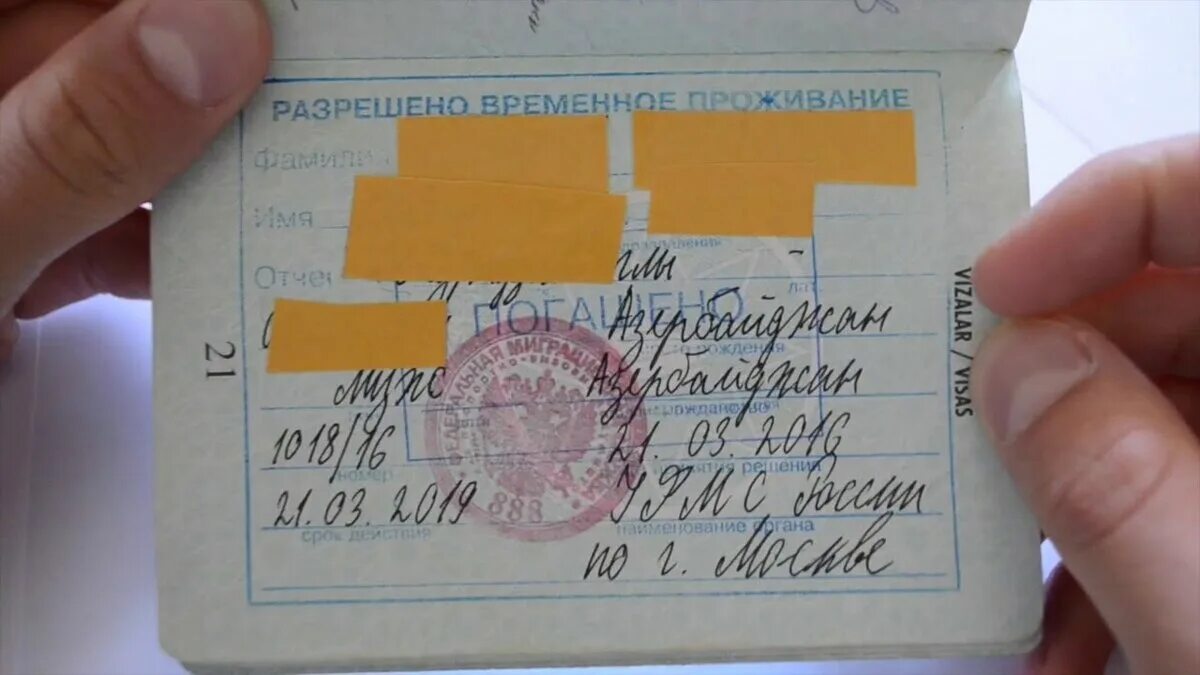 РАЗРЕШЕНО ВРЕМЕННОЕ ПРОЖИВАНИЕ
Фамилия
Имя
глы -
дат.
ПОГАШЕНО
Азербайджан
рождения
муж Азербайджан
1018/16 21.03.2016
номер принятия решения
21.03.2019 УФМС России
срок действия наименование органа
по г. Москве
ФЕДЕРАЛЬНАЯ МИГРАЦИ
888
21
VIZALAR / VISAS